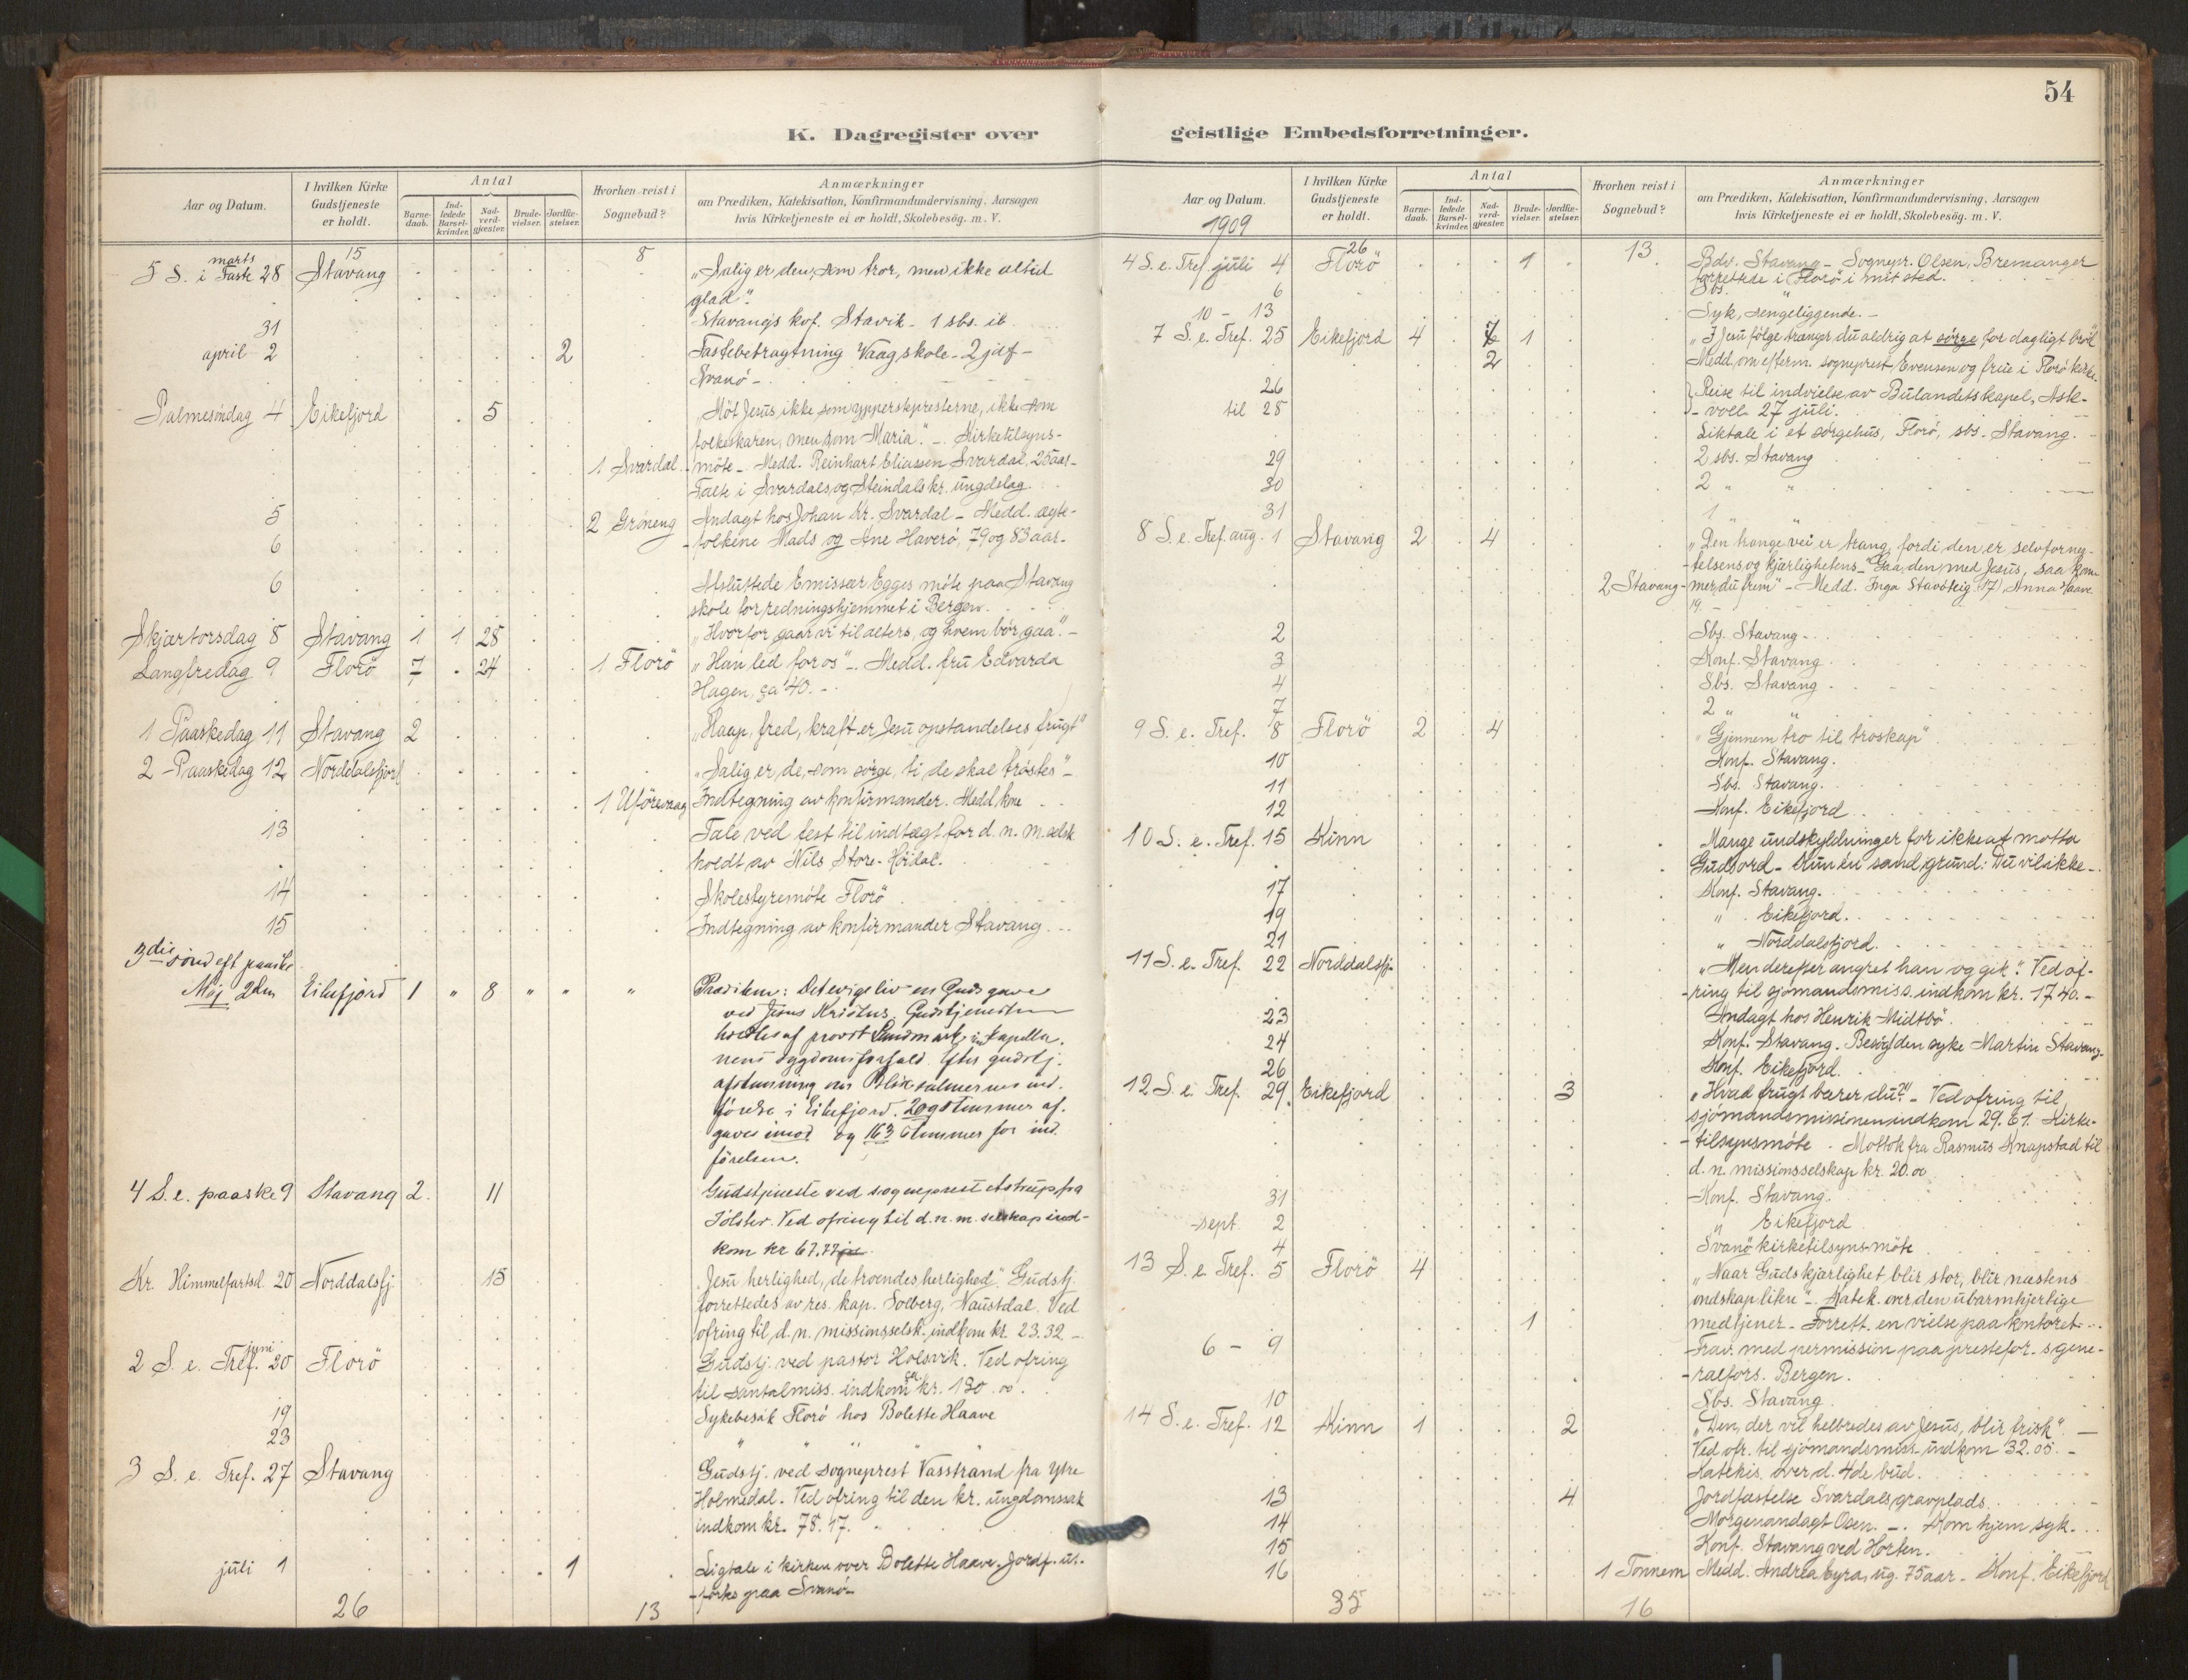 54
K. Dagregister over
geistlige Embedsforretninger.
Aar og Datum.
I hvilken Kirke Gudstjeneste er holdt.
Antal
Barne-daab.
Ind-ledede Barsel-kvinder.
Nad-verd-gjæster.
Brude-vielser.
Jordfæ-stelser.
Hvorhen reist i Sognebud?
Anmærkninger
om Prædiken, Katekisation, Konfirmandundervisning. Aarsagen
hvis Kirketjeneste ei er holdt, Skolebesög. m. V.
15 8
5 S. i Faste marts 28 Stavang „Salig er den, som tror, men ikke altid
glad".
31 Stavangs kof. Stavik - 1 sbs. ib.
april 2 2 Fastebetragtning Vaagskole - 2 jdf -
Svanö -
Palmesöndag 4 Eikefjord 5 „Möt Jesus, ikke som ypperstepresterne, ikke som
folkeskaren, men som Maria." - Kirketilsyns-
1 Svardal - möte - Medd. Reinhart Eliassen Svardal, 25 aar -
Tale i Svardals og Steindals kr. ungdslag.
5 2 Gröneng Andagt hos Johan Kr. Svardal - Medd. ægte-
6 - folkene Mads og Ane Haverö, 79 og 83 aar -
6 Avsluttede Emissær Egges möte paa Stavang
skole for redningshjemmet i Bergen.
Skjærtorsdag 8 Stavang 1 1 28 „Hvorfor gaar vi til alters, og hvem bör gaa". -
Langfredag 9 Florö 7 24 1 Florö „Han led for os" - Medd. fru Edvarda
Hagen, ca 40. -
1 Paaskedag 11 Stavang 2 „Haap, fred, kraft er Jesu opstandelses frugt"
2 Paaskedag 12 Norddalsfjord „Salig er de, som sörge, ti de skal tröstes" -
1 Uförevaag Indtegning av konfirmander. Medd. kone
13 Tale ved fest til indtægt for d. n. m. selsk.
holdt av Nils Store-Höidal.
14 Skolestyremöte Florö
15 Indtegning av konfirmander Stavang
3die sönd eft paaske
Maj 2den Eikefjord 1 „ 8 „ „ „ Prædiken: Det evige liv en Guds gave
ved Jesus Kristus. Gudstjenesten
holdtes af provst Landmark, i kapella-
nens sygdomsforfald. Efter gudstj.
afstemning om Blix salmernes ind-
förelse i Eikefjord. 209 stemmer af-
gaves imod og 163 stemmer for ind-
förelsen.
4 S. e. paaske 9 Stavang 2 11 Gudstjeneste ved sogneprest Astrup fra
Jölster. Ved ofring til d. n. m. selskap ind-
kom kr 67.77
Kr. Himmelfartsd. 20 Norddalsfj 15 „Jesu herlighed, de troendes herlighed". Gudstj.
forrettedes av res. kap. Solberg, Naustdal. Ved
ofring til d. n. missionsselsk. indkom kr. 23.32 -
2 S. e. Tref. juni 20 Florö Gudstj. ved pastor Holsvik. Ved ofring
til santalmiss. indkom ca. kr. 130.00.
19 Sykebesök Florö hos Bolette Haave
23 „ „ „ „ „
3 S. e. Tref. 27 Stavang Gudstj. ved sogneprest Vasstrand fra Ytre
Holmedal. Ved ofring til den kr. ungdomssak
indkom kr. 78.17.
juli 1 1 Ligtale i kirken over Bolette Haave. Jordf. ut-
förtes paa Svanö -
26 13
Aar og Datum.
1909
I hvilken Kirke Gudstjeneste er holdt.
Antal
Barne-daab.
Ind-ledede Barsel-kvinder.
Nad-verd-gjæster.
Brude-vielser.
Jordfæ-stelser.
Hvorhen reist i Sognebud?
Anmærkninger
om Prædiken, Katekisation, Konfirmandundervisning, Aarsagen
hvis Kirketjeneste ei er holdt, Skolebesög. m. V.
26 13
4 S. e. Tref. juli 4 Florö 1 Bdv. Stavang - Sognepr. Olsen, Bremanger
forrettede i Florö i mit sted.
6 Sbs. „
10 - 13 Syk, sengeliggende. -
7 S. e. Tref. 25 Eikefjord 4 7 1 „I Jesu fölge trænger du aldrig at sörge for dagligt bröd"
2 Medd. om efterm. sogneprest Evensen og frue i Florö kirke.
26 Reise til indvielse av Bulandets kapel, Ask-
til 28 - voll 27 juli.
Liktale i et sörgehus, Florö, sbs. Stavang.
29 2 sbs. Stavang
30 2 „ „
31 1 „
8 S. e. Tref. aug. 1 Stavang 2 4 „Den trange vei er trang, fordi den er selvforneg-
telsens og kjærlighetens - Gaa den med Jesus, saa kom-
2 Stavang - mer du frem" - Medd. Inga Stavöteig (17), Anna Haave
19. -
2 Sbs. Stavang -
3 Konf. Stavang
4 Sbs. Stavang
7 2 „ „
9 S. e. Tref. 8 Florö 2 4 „Gjennem tro til troskap"
10 Konf. Stavang.
11 Sbs. Stavang.
12 Konf. Eikefjord
10 S. e. Tref. 15 Kinn Mange undskyldninger for ikke at motta
Guds ord - Kun én sand grund: Du vil ikke -
17 Konf. Stavang.
19 „ Eikefjord.
21 „ Norddalsfjord.
11 S. e. Tref. 22 Norddalsfj. „Men derefter angret han og gik". Ved of-
- ring til sjömandsmiss. indkom kr. 17 40. -
23 Andagt hos Henrik Midtbö.
24 Konf. Stavang. Besög den syke Martin Stavang.
26 Konf. Eikefjord.
12 S. e. Tref. 29. Eikefjord 3 „Hvad frugt bærer du?" - Ved ofring til
sjömandsmissionen indkom 29.61. Kirke-
- tilsynsmöte. Mottok fra Rasmus Knapstad til
d. n. missionsselskap kr. 20.00
31 Konf. Stavang.
sept. 2 „ Eikefjord
4 Svanö kirketilsynsmöte
13 S. e. Tref. 5 Florö 4 „Naar Guds kjærlighet blir stor, blir næstens
ondskap liten" - Katek. over den ubarmhjertige
1 medtjener - Forrett. en vielse paa kontoret.
6 - 9 Frav. med permission paa prestefor.s gene-
- ralfors. Bergen.
10 Sbs. Stavang.
14 S. e. Tref. 12 Kinn 1 2 „Den, der vil helbredes av Jesus, blir frisk". -
Ved ofr. til sjömandsmiss. indkom 32.05. -
Katekis. over d. 4de bud.
13 4 Jordfæstelse Svardals gravplads.
14 Morgenandagt Osen. - Kom hjem syk.
15 Konf. Stavang ved Horten.
16 1 Tonnem Medd. Andrea Eyra, ug. 75 aar - Konf. Eikefjord
35 16